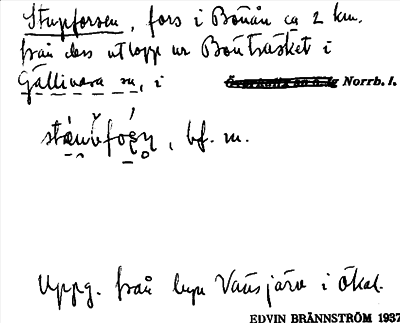 Stupforsen, fors i Bönån ca 2 km.
från dess utlopp ur Bönträsket i
Gällivara sn, i Norrb. l.
bf. m.
Uppg. från byn Vänsjärv i Ökal.
EDVIN BRÄNNSTRÖM 1937